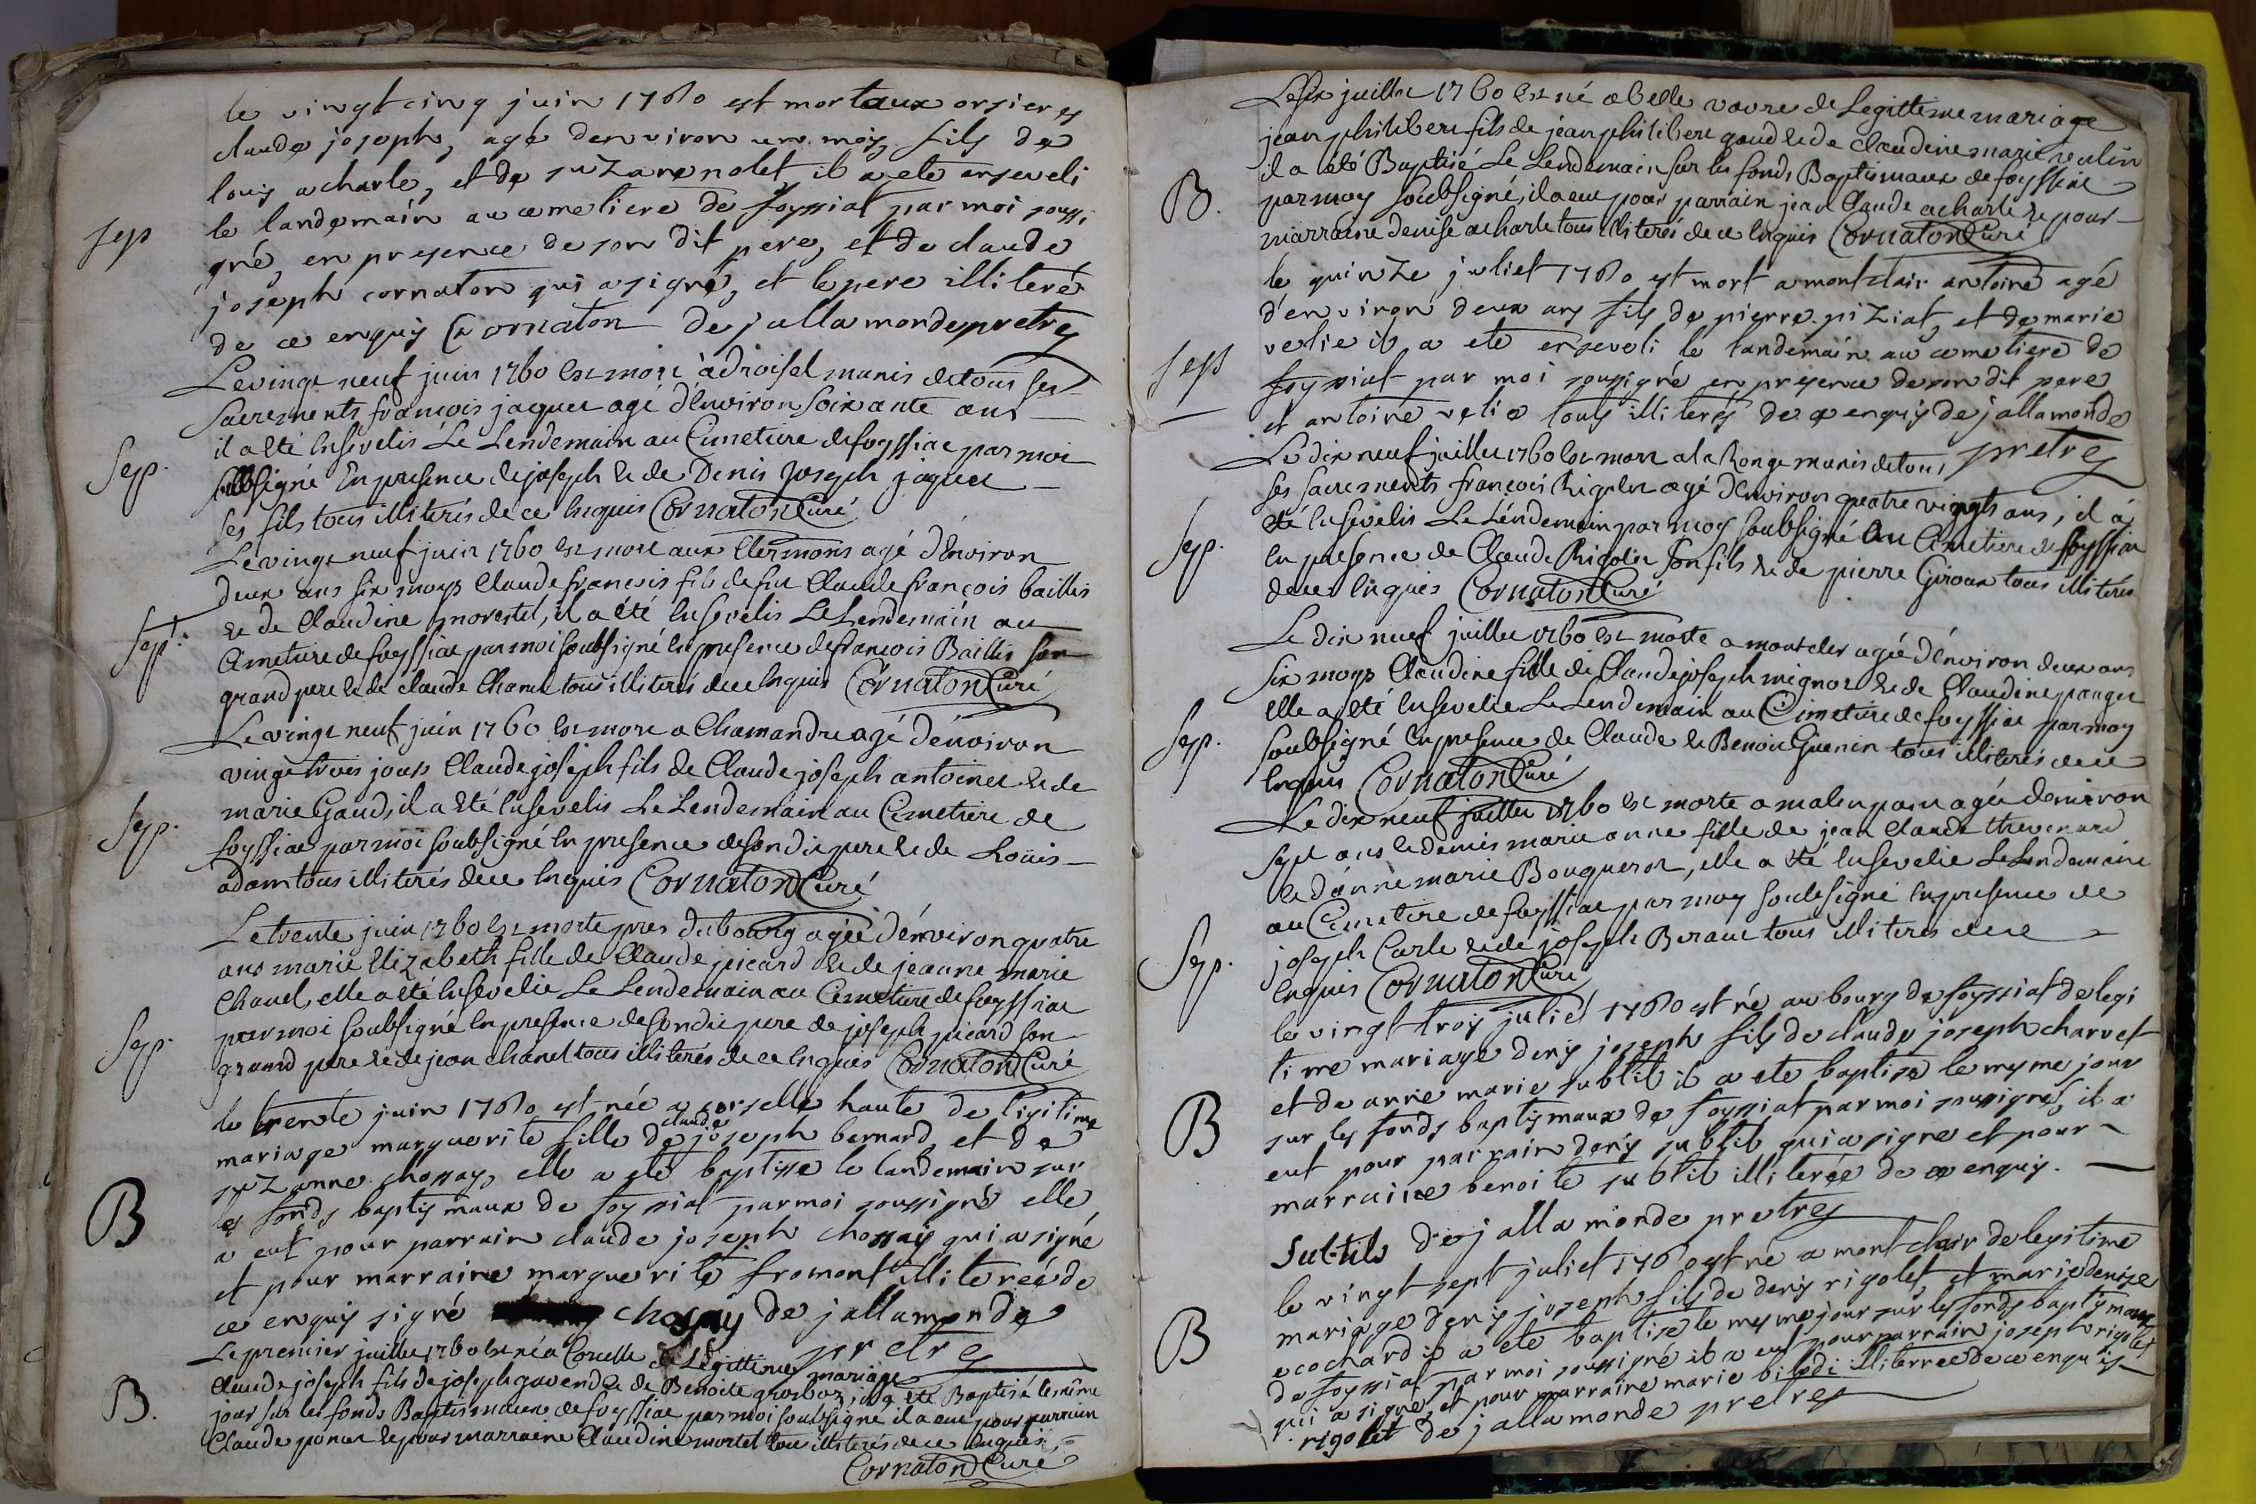 le vingt cinq juin 1760 est mort aux orsieres
claude joseph, agé denviron un mois, fils de
louis acharle, et de suzane nolet il a ete enseveli
sep
le landemain au cemetiere de foyssiat par moi soussi
gné, en presence de son dit pere, et de claude
joseph cornaton qui a signé, et le pere illiteré
de ce enquis Cornaton dejallamonde pretre
Le vingt neuf juin 1760 est mort à droisel munis de tous ses
Sacrements francois jaquet agé d'Environ Soixante ans
il a Eté Ensévelis Le Lendemain au Cimetiere de foyssiat par moi
Sep.
soubsigné En presence de joseph et de Denis Joseph jaquet
ses fils tous illiterés de ce Enquis Cornaton Curé
Le vingt neuf juin 1760 est mort aux Clermons agé d'Environ
deux ans six moys Claude francois fils de feu Claude françois baillis
et de Claudine morestel, il a été Ensevelis Le Lendemain au
Sept.
Cimetiere de foyssiat par moi soubsigné En presence de francois Baillis son
grand pere et de claude Chanel tous illiterés de ce Enquis Cornaton Curé
Le vingt neuf juin 1760 est mort a Chamandre agé d'énviron
vingt trois jours Claude joseph fils de Claude joseph antoinet et de
marie Gaud, il a Eté Ensevelis Le Lendemain au Cimetiere de
Sep.
foyssiat par moi soubsigné En presence de son dit pere et de Loüis
adam tous illiterés de ce Enquis Cornaton Curé
Le trente juin 1760 Est morte pres du bourg agée d'énviron quatre
ans marie Elizabeth fille de Claude picard et de jeanne marie
Chanel, elle a eté Ensevelie Le Lendemain au Cimetiere de foyssiat
Sep.
par moi soubsigné En presence de son dit pere de joseph picard son
grand pere et de jean chanel tous illiterés de ce Enquis Cornaton Curé
le trente juin 1760 est née a corselle haute de legitime
claude
mariage marguerite fille de joseph bernard, et de
suzanne chossay, elle a eté baptisse le landemain sur
B
les fonds baptismaux de foyssiat par moi soussigné elle
a eut pour parrain claude joseph chossay qui a signé
et pour marraine marguerite fromont illitereé de
ce enquis signé chosay de jallamonde
pretre
Le premier juillet 1760 Est né a Corcelle de Legittime mariage
Claude joseph fils de joseph gavend et de Benoite grosboz, il a été Baptisé le même
B.
jour sur les fonds Baptismaux de foyssiat par moi soubsigné il a eut pour parrain
Claude poncet et pour marraine Claudine mortel tous illiterés de ce Enquis,
Cornaton Curé
Le six juillet 1760 Est né a belle vavre de Legittime mariage
jean philibert fils de jean philibert gaud et de claudine marie vulin
il a été Baptisé Le Lendemain sur les fonds Baptismaux de foyssiat
B.
par moy soubsigné, il a eut pour parrain jean Claude acharle et pour
marraine denise acharle tous illiterés de ce Enquis Cornaton Curé
le quinze juliet 1760 est mort a montclair antoine agé
d'environ deux ans fils de pierre piziat, et de marie
velie il a ete enseveli le landemain au cemetiere de
sep
foyssiat par moi soussigné en presence de son dit pere
et antoine velie tous illiterés de ce enquis de jallamonde
pretre
Le dix neuf juillet 1760 Est mort a la Ronge munis de tous
ses sacrements francois Rigolet agé d'Environ quatre vingts ans, il a
été Ensevelis Le Léndemain par moy soubsigné au Cimetiere de foyssiat
Sep.
En presence de Claude Rigolet son fils et de pierre Giroux tous illiterés
de ce Enquis Cornaton Curé
Le dix neuf juillet 1760 Est morte a montcler agée d'énviron deux ans
six moys Claudine fille de Claude joseph mignot et de Claudine panget
Elle a été Ensevelie Le Lendemain au Cimetiere de foyssiat par moy
Sep.
soubsigné En presence de Claude et Benoit Guenin tous illiterés de ce
Enquis Cornaton Curé
Le dix neuf juillet 1760 Est morte a malenpain agée denviron
sept ans et demis marie anne fille de jean Claude thevenard
et d'anne marie Bouquerot, elle a été Ensevelie Le Lendemain
au Cimetiere de foyssiat par moy soubsigné En presence de
Sep.
joseph Carle et de joseph Beraud tous illiterés de ce
Enquis Cornaton Curé
le vingt trois juliet 1760 est né au bourg de foyssiat de legi
time mariage denis joseph fils de claude joseph charvet
et de anne marie subtil il a ete baptisé le mesme jour
B
sur les fonds baptismaux de foyssiat par moi soussigné, il a
eut pour parrain denis subtil qui a signé et pour
marraine benoite subtil illiterée de ce enquis.
Subtil dejallamonde pretre
le vingt sept juliet 1760 est né a montclair de legitime
mariage denis joseph fils de denis rigolet, et marie denise
B
ecochard il a ete baptisé le mesme jour sur les fonds baptismaux
de foyssiat par moi soussigné il a eut pour parrain joseph rigolet
qui a signé et pour marraine marie bilodi illiterree de ce enquis
rigolet de jallamonde pretre